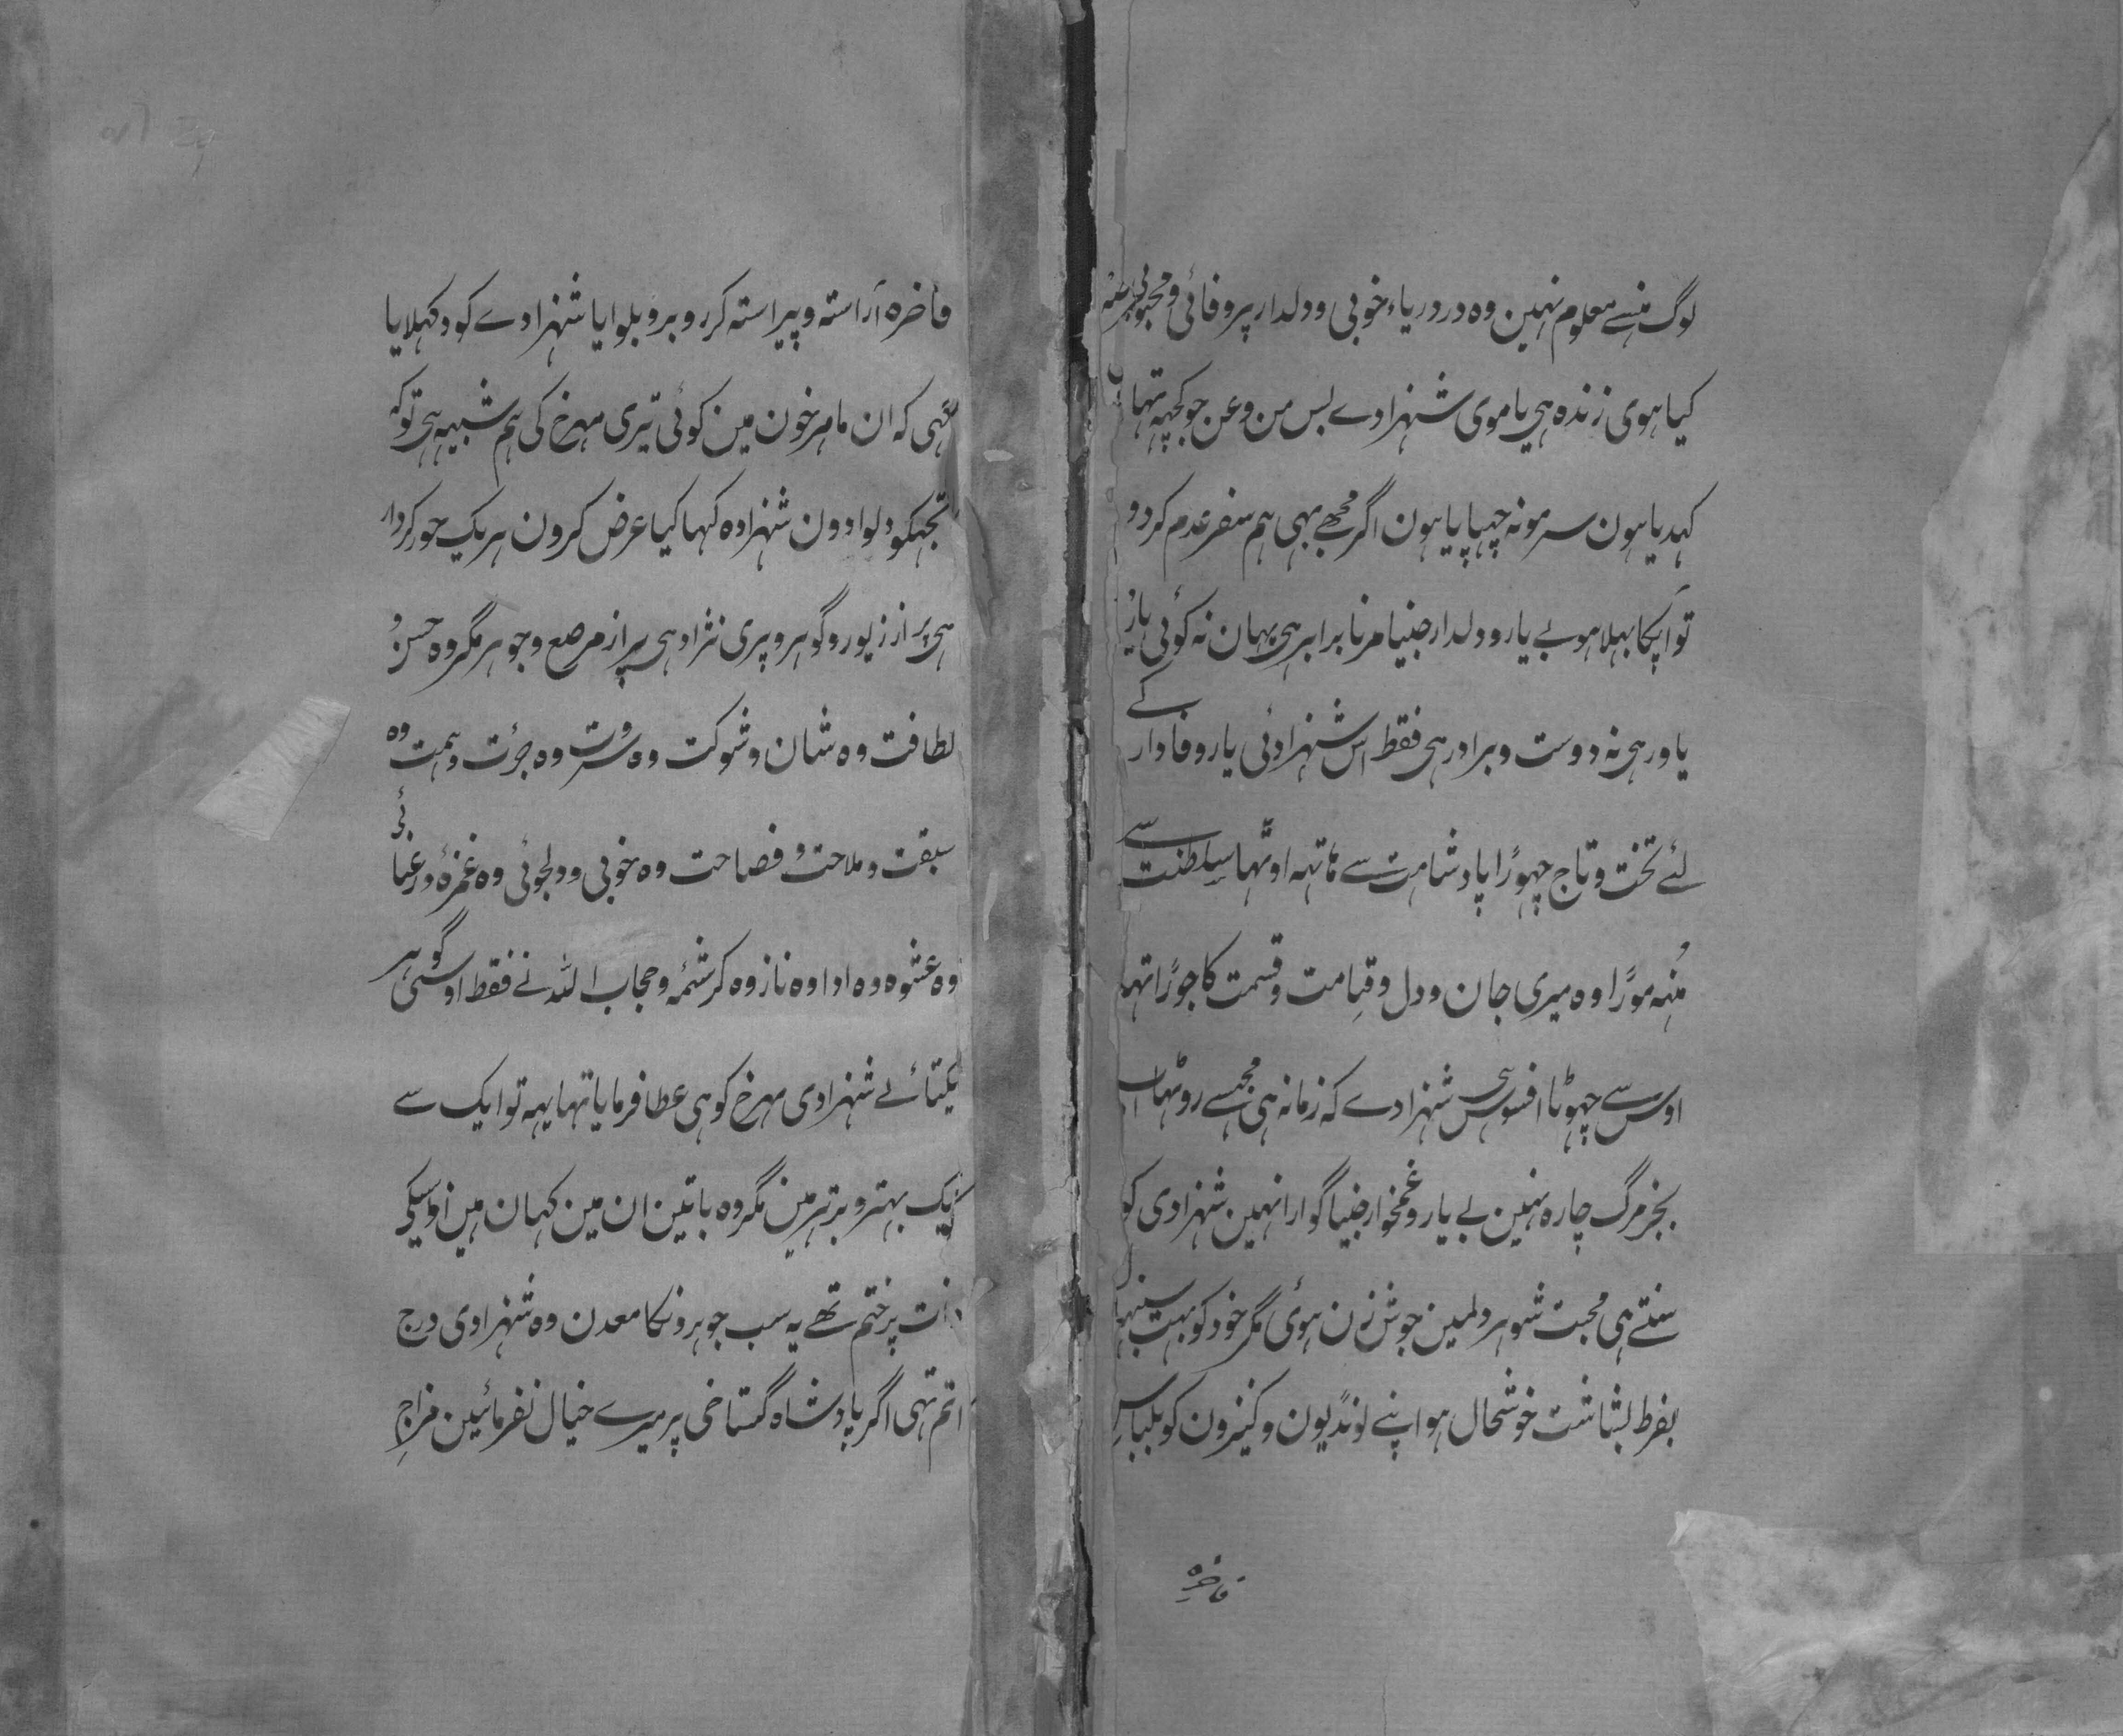 لوگ ہنسے معلوم نہین وہ در دریاء خوبی و دلدار پر وفائی و محبوبی
کیا ہوی زندہ ہی یا موی شہزادے بس من و عن جو کچہہ تہا
کہدیا ہون سر مو نہ چہپایا ہون اگر مجھے بہی ہم سفر عدم کر دو
تو آپکا بہلا ہو بے یار و دلدار جنیا مرنا برابر ہی یہان نہ کوئی یار
یاور ہی نہ دوست و برادر ہی فقط اس شہزادئی یار وفادار کے
لئے تخت و تاج چہوڑا پادشاہت سے ہاتہہ اوٹہا سلطنت سے
مُنہہ موڑا وہ میری جان و دل و قیامت و قسمت کا جوڑا تہا
اوس سے چہوٹا افسوس ہی شہزادے کہ زمانہ ہی مجہسے روٹہا
بجز مرگ چارہ نہین بے یار و غمخوار جنیا گوارا نہین شہزادی کو
سنتے ہی محبت شوہر دلمین جوش زن ہوئی مگر خود کو بہت سنبہا
بفرط بشاشت خوشحال ہو اپنے لونڈیون و کنیزون کو بلباس
فاخرہ
فاخرہ آراستہ و پیراستہ کر روبرو بلوایا شہزادے کو دکہلایا
کہی کہ ان ماہرخون مین کوئی تیری مہرخ کی ہم شبیہ ہی تو کہ
تجہکو دلوا دون شہزادہ کہا کیا عرض کرون ہر یک حور کردار
ہی پر از زیور و گوہر و پری نژاد ہی پر از مرصع و جوہر مگر وہ حسن و
لطافت وہ شان و شوکت وہ ثروت وہ جرئت و ہمت وہ
سبقت و ملاحت و فصاحت وہ خوبی و دلجوئی وہ غمزہ و رعنائی
وہ عشوہ وہ ادا وہ ناز وہ کرشمہ و حجاب اللہ نے فقط اوسی گوہر
یکتائے شہزادی مہرخ کو ہی عطا فرمایا تہا یہہ تو ایک سے
یک بہتر و برتر ہین مگر وہ باتین ان مین کہان ہین اوسیکی
ذات پر ختم تھے یہ سب جوہرونکا معدن وہ شہزادی درج
اتم تہی اگر پادشاہ گستاخی پر میرے خیال نفرمائین مزاجِ